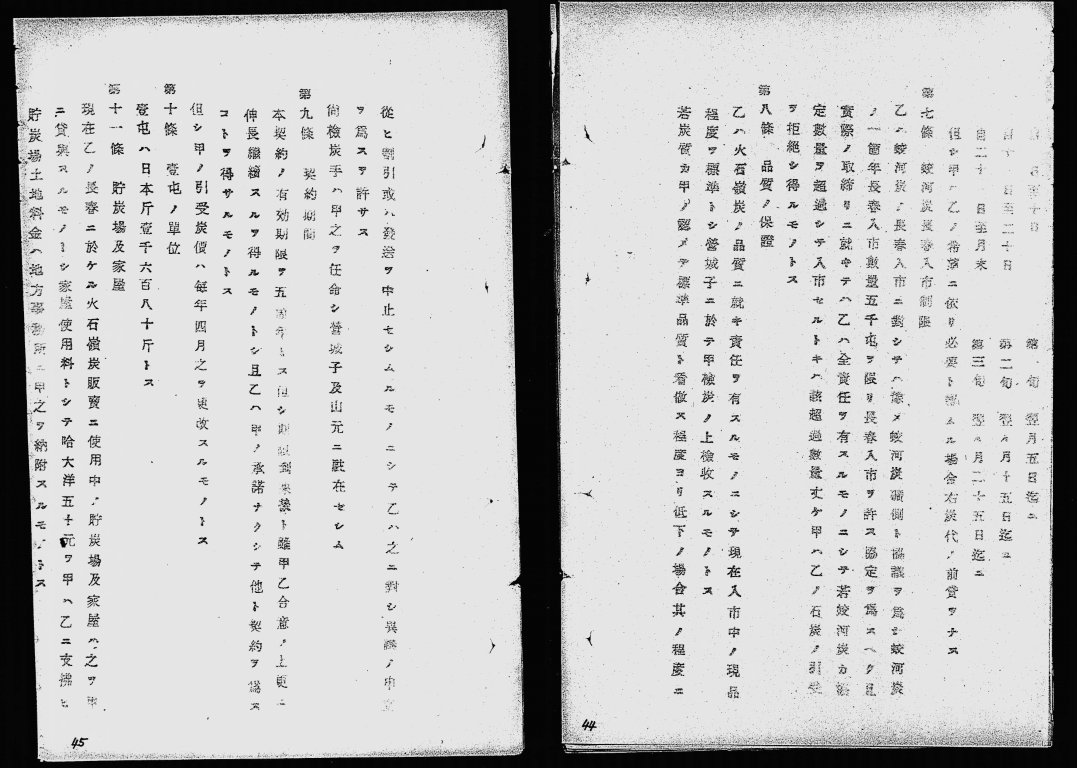 日至十日 第一旬 翌月五日迄ニ
自十一日至二十日 第二旬 翌々月十五日迄ニ
自二十一日至月末 第三旬 翌々月二十五日迄ニ
但シ甲ハ乙ノ希望ニ依リ必要ト認ムル場合右炭代ノ前貸ヲナス
第七條 蛟河炭長春入市制限
乙ハ蛟河炭ノ長春入市ニ對シテハ豫メ蛟河炭礦側ト協議ヲ爲シ蛟河炭
ノ一箇年長春入市數量五千屯ヲ限リ長春入市ヲ許ス協定ヲ爲スヘク且
實際ノ取締リニ就キテハ乙ハ全責任ヲ有スルモノニシテ若蛟河炭カ協
定數量ヲ超過シテ入市セルトキハ該超過數量丈ケ甲ハ乙ノ石炭ノ引受
ヲ拒絶シ得ルモノトス
第八條 品質ノ保證
乙ハ火石嶺炭ノ品質ニ就キ責任ヲ有スルモノニシテ現在入市中ノ現品
程度ヲ標準トシ營城子ニ於テ甲檢炭ノ上檢收スルモノトス
若炭質カ甲ノ認メテ標準品質ト看做ス程度ヨリ低下ノ場合其ノ程度ニ
從ヒ割引或ハ發送ヲ中止セシムルモノニシテ乙ハ之ニ對シ異議ノ申立
ヲ爲スヲ許サス
尚檢炭手ハ甲之ヲ任命シ營城子及山元ニ駐在セシム
第九條 契約期間
本契約ノ有効期限ヲ五箇年トス但シ期限到來後ト雖甲乙合意ノ上更ニ
伸長繼續スルヲ得ルモノトシ且乙ハ甲ノ承諾ナクシテ他ト契約ヲ爲ス
コトヲ得サルモノトス
但シ甲ノ引受炭價ハ毎年四月之ヲ更改スルモノトス
第十條 壹屯ノ單位
壹屯ハ日本斤壹千六百八十斤トス
第十一條 貯炭場及家屋
現在乙ノ長春ニ於ケル火石嶺炭販賣ニ使用中ノ貯炭場及家屋ハ之ヲ甲
ニ貸與スルモノトシ家屋使用料トシテ哈大洋五十元ヲ甲ハ乙ニ支拂ヒ
貯炭場土地料金ハ地方事務所ニ甲之ヲ納附スルモノトス
45
44